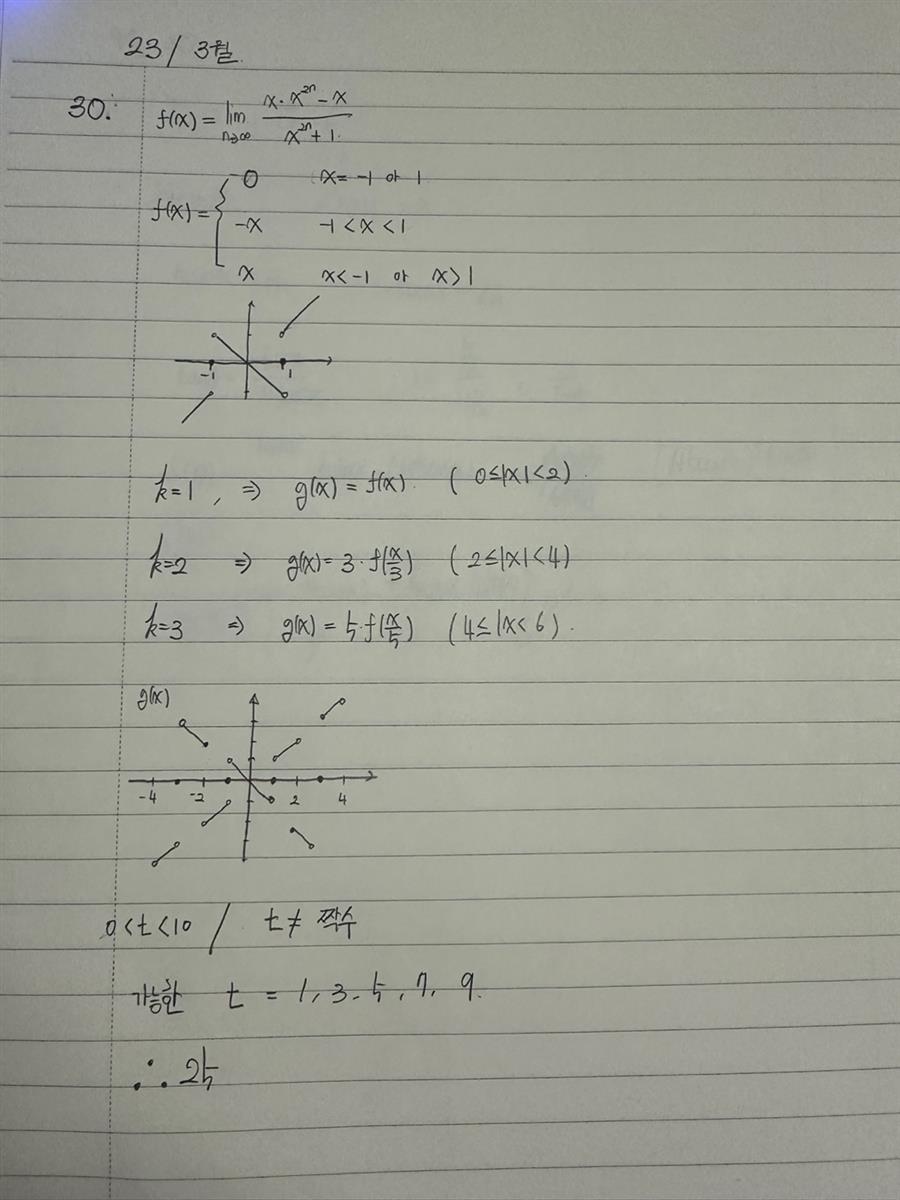 23 / 3월.
30.
f(x) = lim n→∞ (x·x²ⁿ - x) / (x²ⁿ + 1)
f(x) = { 0 x = -1 or 1
-x -1 < x < 1
x x < -1 or x > 1
-1 1
k=1, ⇒ g(x) = f(x). ( 0≤|x|<2) .
k=2 ⇒ g(x) = 3·f(x/3) ( 2≤|x|<4)
k=3 ⇒ g(x) = 5·f(x/5) (4≤|x<6) .
g(x)
-4 -2 2 4
0<t<10 / t≠ 짝수
가능한 t = 1, 3, 5, 7, 9.
∴ 25